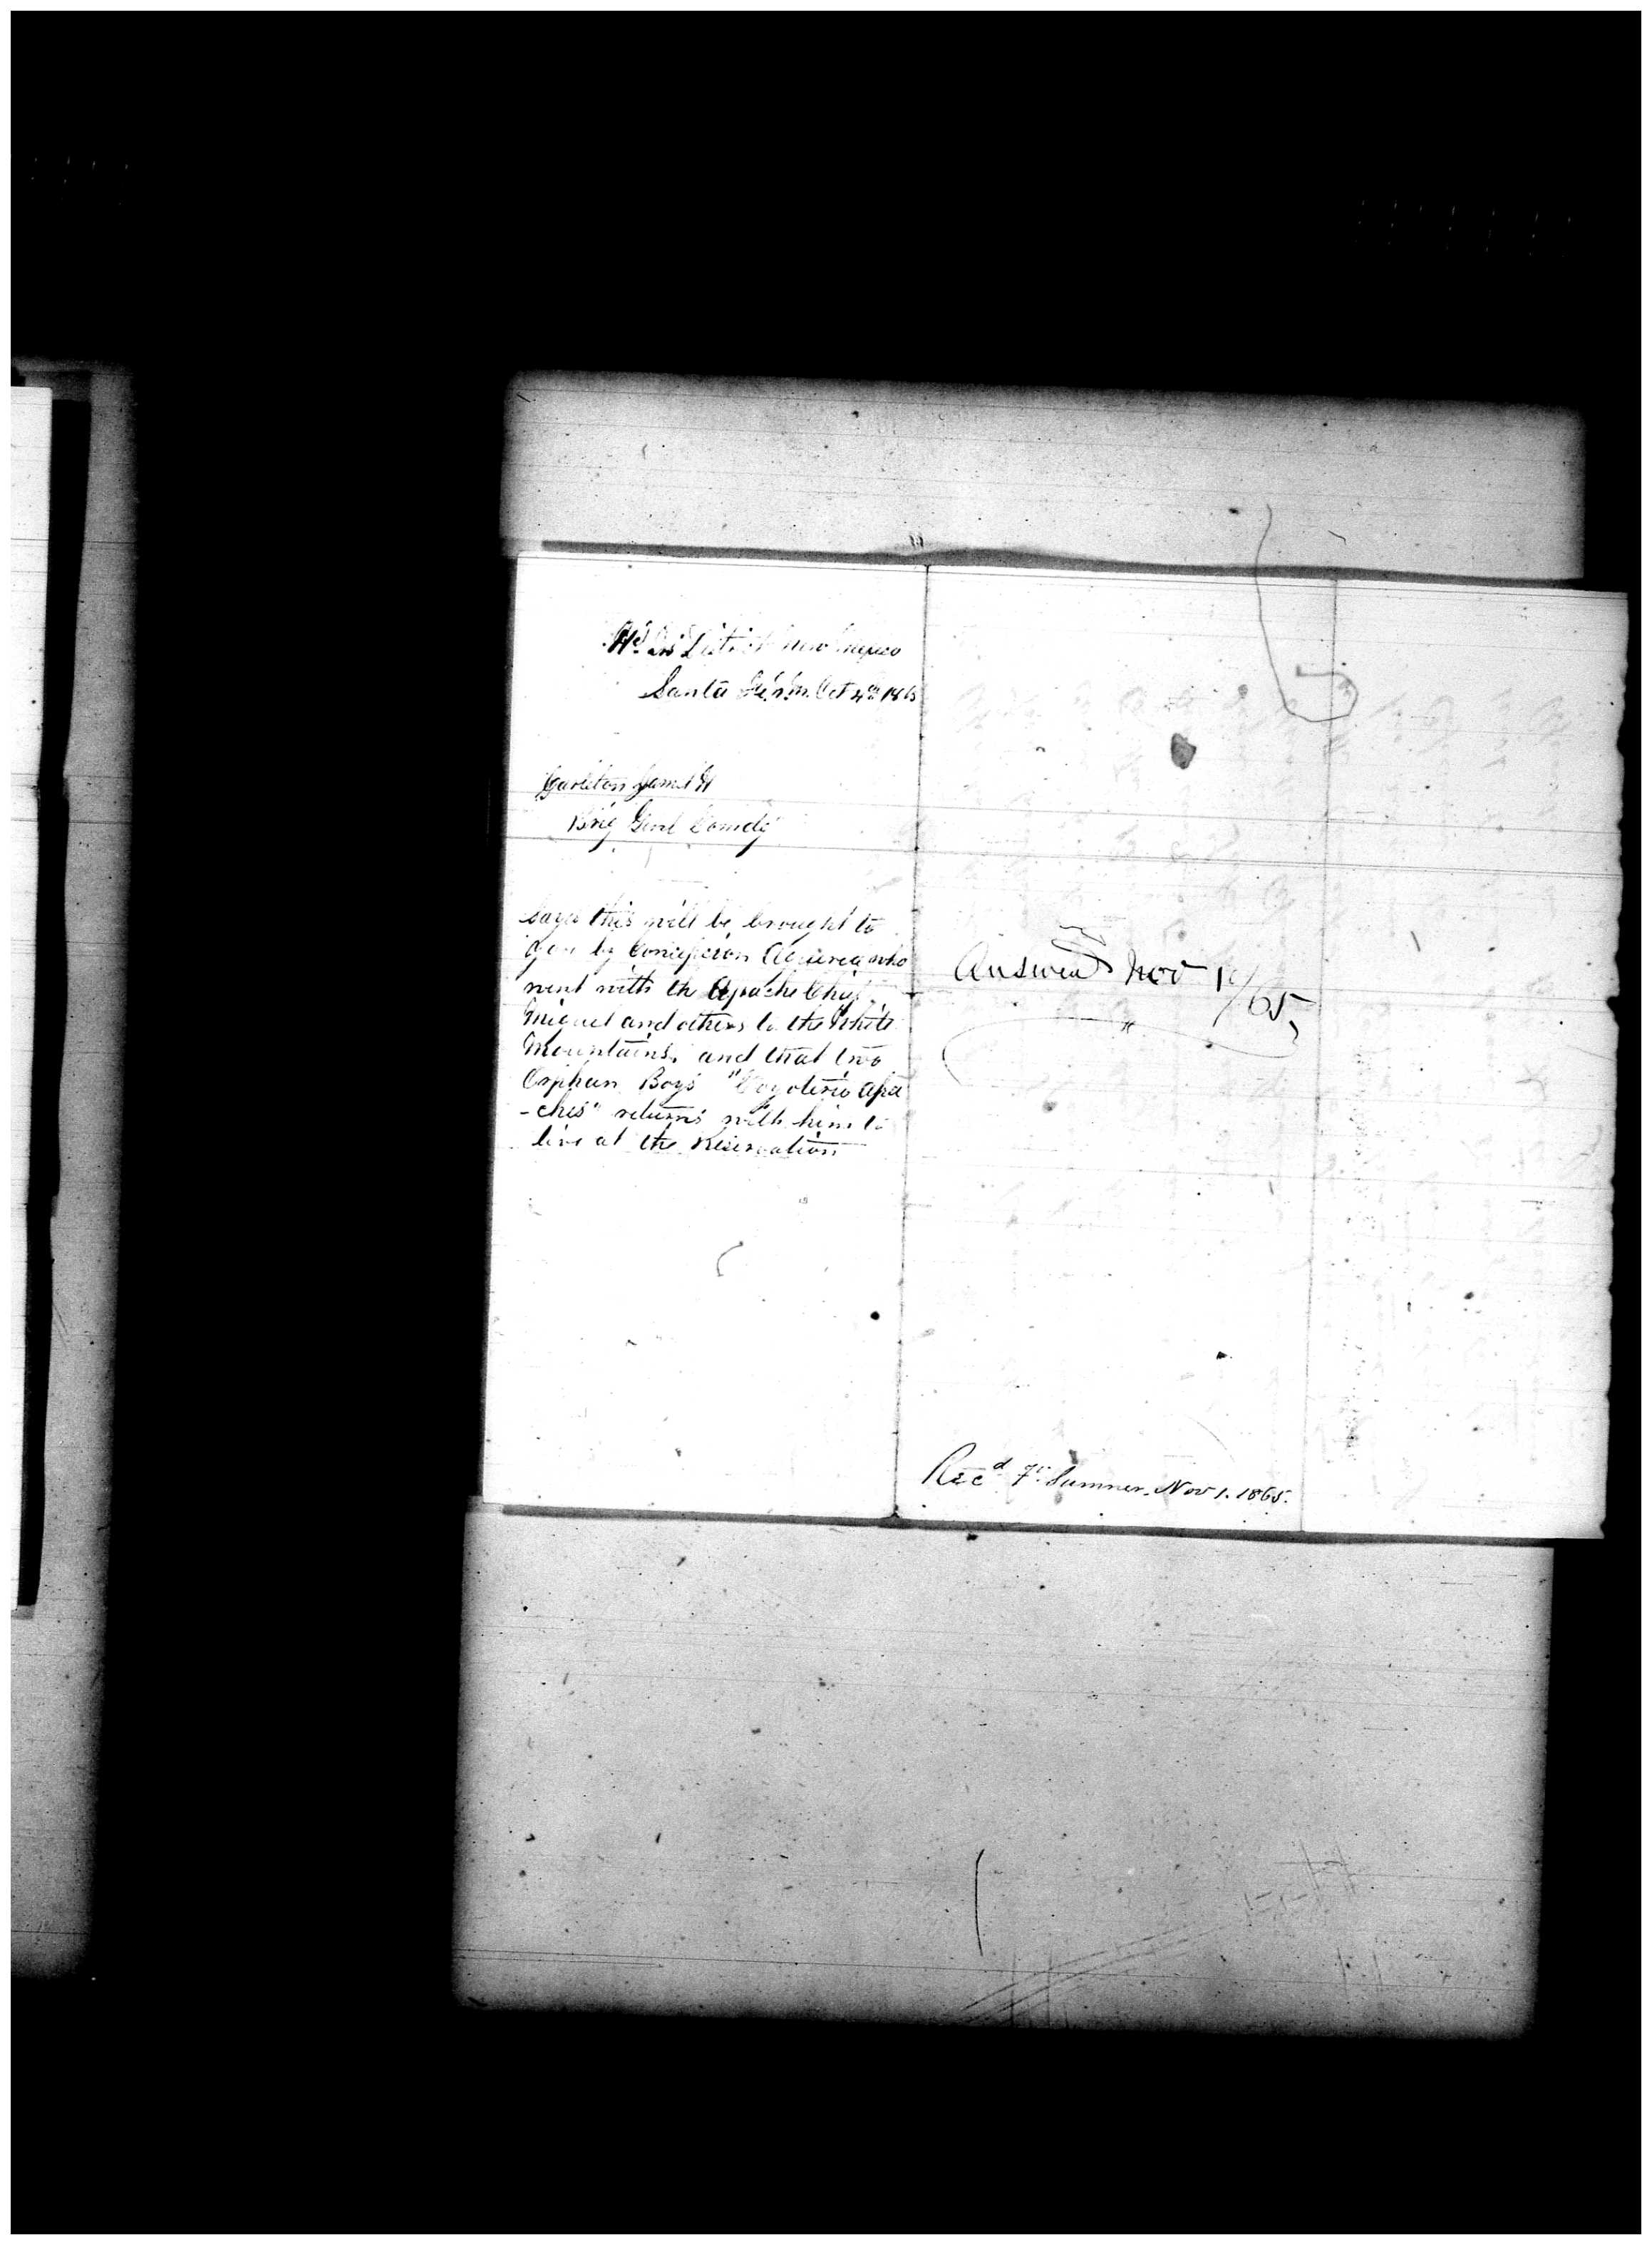 Hd Qrs District New Mexico
Santa Fé N.M. Oct 4th 1865
Carleton James H
Brig Genl Comdg
Says this will be brought to
you by Concepcion who
went with the Apache Chief
Miguel and others to the White
Mountains, and that two
Orphan Boys "Coyotero Apa
-ches" returns with him to
live at the Reservation
Answered Nov 1st/65
Recd Ft Sumner. Nov 1. 1865.